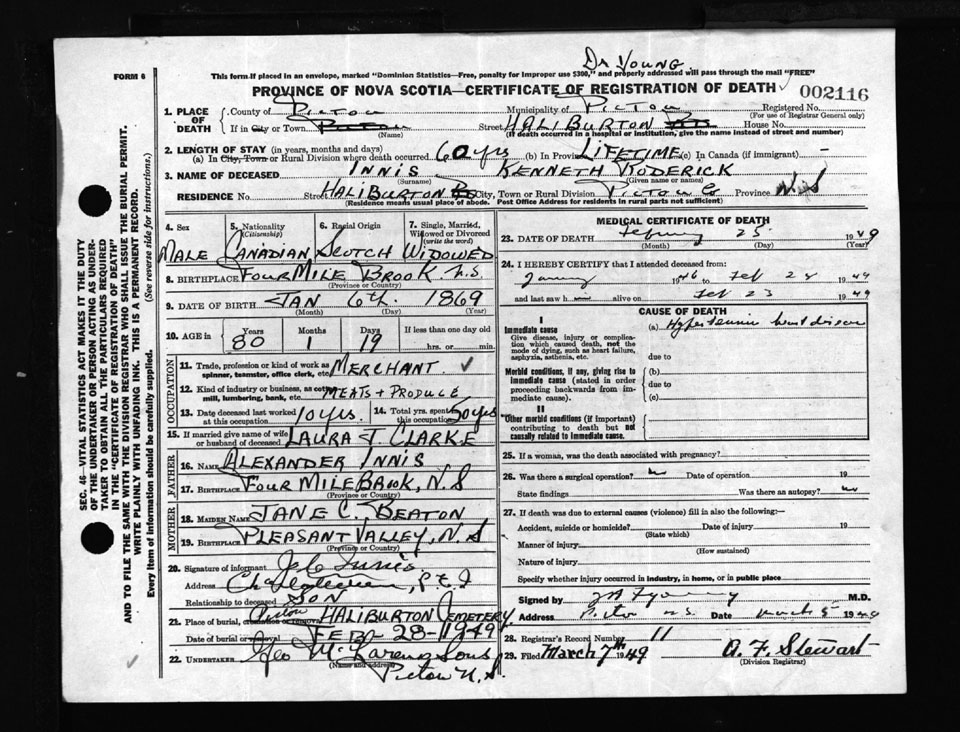 Dr Young
FORM 6
This form if placed in an envelope, marked "Dominion Statistics—Free, penalty for improper use $300," and properly addressed will pass through the mail "FREE"
PROVINCE OF NOVA SCOTIA—CERTIFICATE OF REGISTRATION OF DEATH
002116
1. PLACE OF DEATH
County of PICTOU Municipality of PICTOU Registered No.
(For use of Registrar General only)
If in City or Town PICTOU Street HALIBURTON House No.
(Name) (If death occurred in a hospital or institution, give the name instead of street and number)
2. LENGTH OF STAY (in years, months and days)
(a) In City, Town or Rural Division where death occurred 60 yrs (b) In Province LIFETIME (c) In Canada (if immigrant) -
3. NAME OF DECEASED INNIS KENNETH RODERICK
(Surname) (Given name or names)
RESIDENCE No. Street HALIBURTON City, Town or Rural Division PICTOU Co Province N.S
(Residence means usual place of abode. Post Office Address for residents in rural parts not sufficient)
4. Sex 5. Nationality 6. Racial Origin 7. Single, Married, Widowed or Divorced
(Citizenship) (write the word)
MALE CANADIAN SCOTCH WIDOWED
8. BIRTHPLACE FOUR MILE BROOK N.S.
(Province or Country)
9. DATE OF BIRTH JAN 6th. 1869
(Month) (Day) (Year)
10. AGE in Years Months Days If less than one day old
80 1 19 hrs. or min.
OCCUPATION
11. Trade, profession or kind of work as spinner, teamster, office clerk, etc. MERCHANT ✓
12. Kind of industry or business, as cotton mill, lumbering, bank, etc. MEATS + PRODUCE
13. Date deceased last worked at this occupation 10 yrs. 14. Total yrs. spent in this occupation 50 yrs
15. If married give name of wife or husband of deceased LAURA J. CLARKE
FATHER
16. NAME ALEXANDER INNIS
17. BIRTHPLACE FOUR MILE BROOK, N.S
(Province or Country)
MOTHER
18. MAIDEN NAME JANE C. BEATON
19. BIRTHPLACE PLEASANT VALLEY, N.S
(Province or Country)
20. Signature of informant
Address P.E.I
Relationship to deceased SON
21. Place of burial, cremation or removal Pictou HALIBURTON CEMETERY
Date of burial or removal FEB-28-1949
22. UNDERTAKER Geo McLaren & Sons
(Name and address)
Pictou N.S.
MEDICAL CERTIFICATE OF DEATH
23. DATE OF DEATH 25 1949
(Month) (Day) (Year)
24. I HEREBY CERTIFY that I attended deceased from:
1946 to Feb 25 1949
and last saw him alive on Feb 23 1949
CAUSE OF DEATH
I
Immediate cause
Give disease, injury or complication which caused death, not the mode of dying, such as heart failure, asphyxia, asthenia, etc.
(a) Hypertensive heart disease
due to
Morbid conditions, if any, giving rise to immediate cause (stated in order proceeding backwards from immediate cause).
(b)
due to
(c)
II
Other morbid conditions (if important) contributing to death but not causally related to immediate cause.
25. If a woman, was the death associated with pregnancy?
26. Was there a surgical operation? no Date of operation 19
State findings Was there an autopsy? no
27. If death was due to external causes (violence) fill in also the following:—
Accident, suicide or homicide? Date of injury 19
(State which)
Manner of injury
(How sustained)
Nature of injury
Specify whether injury occurred in industry, in home, or in public place
Signed by M.D.
Address Pictou N.S. Date March 5 1949
28. Registrar's Record Number 11
29. Filed March 7th 1949 A. F. Stewart
(Division Registrar)
SEC. 46—VITAL STATISTICS ACT MAKES IT THE DUTY
OF THE UNDERTAKER OR PERSON ACTING AS UNDERTAKER
TO OBTAIN ALL THE PARTICULARS REQUIRED
IN THE "CERTIFICATE OF REGISTRATION OF DEATH"
AND TO FILE THE SAME WITH THE DIVISION REGISTRAR WHO SHALL ISSUE THE BURIAL PERMIT.
WRITE PLAINLY WITH UNFADING INK. THIS IS A PERMANENT RECORD.
Every item of information should be carefully supplied. (See reverse side for instructions.)